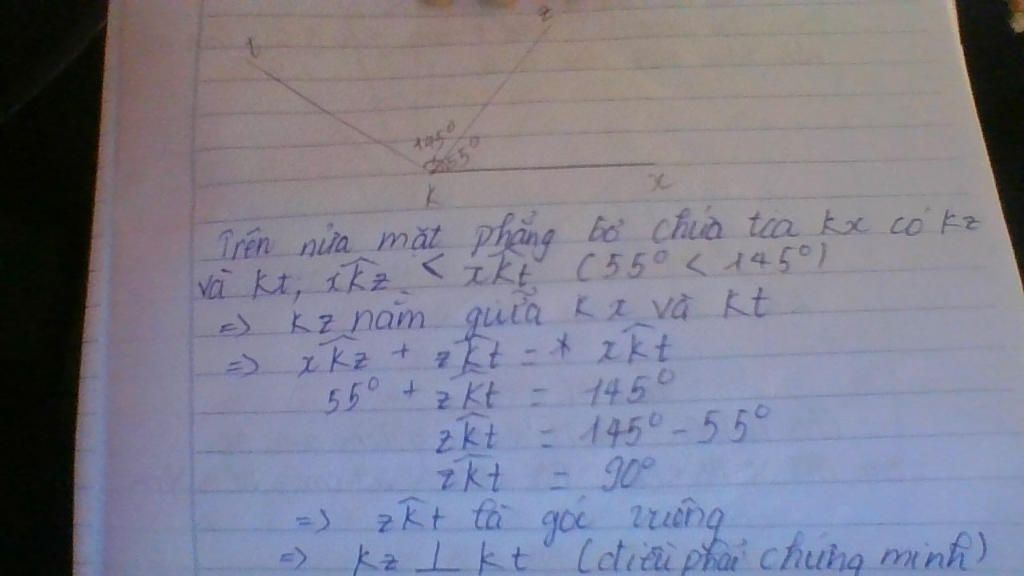 t
z
145°
55°
k
x
Trên nửa mặt phẳng bờ chứa tia kx có kz
và kt, xk̂z < xk̂t (55° < 145°)
=> kz nằm giữa kx và kt
=> xk̂z + zk̂t = xk̂t
55° + zk̂t = 145°
zk̂t = 145° - 55°
zk̂t = 90°
=> zk̂t là góc vuông
=> kz ⊥ kt (điều phải chứng minh)